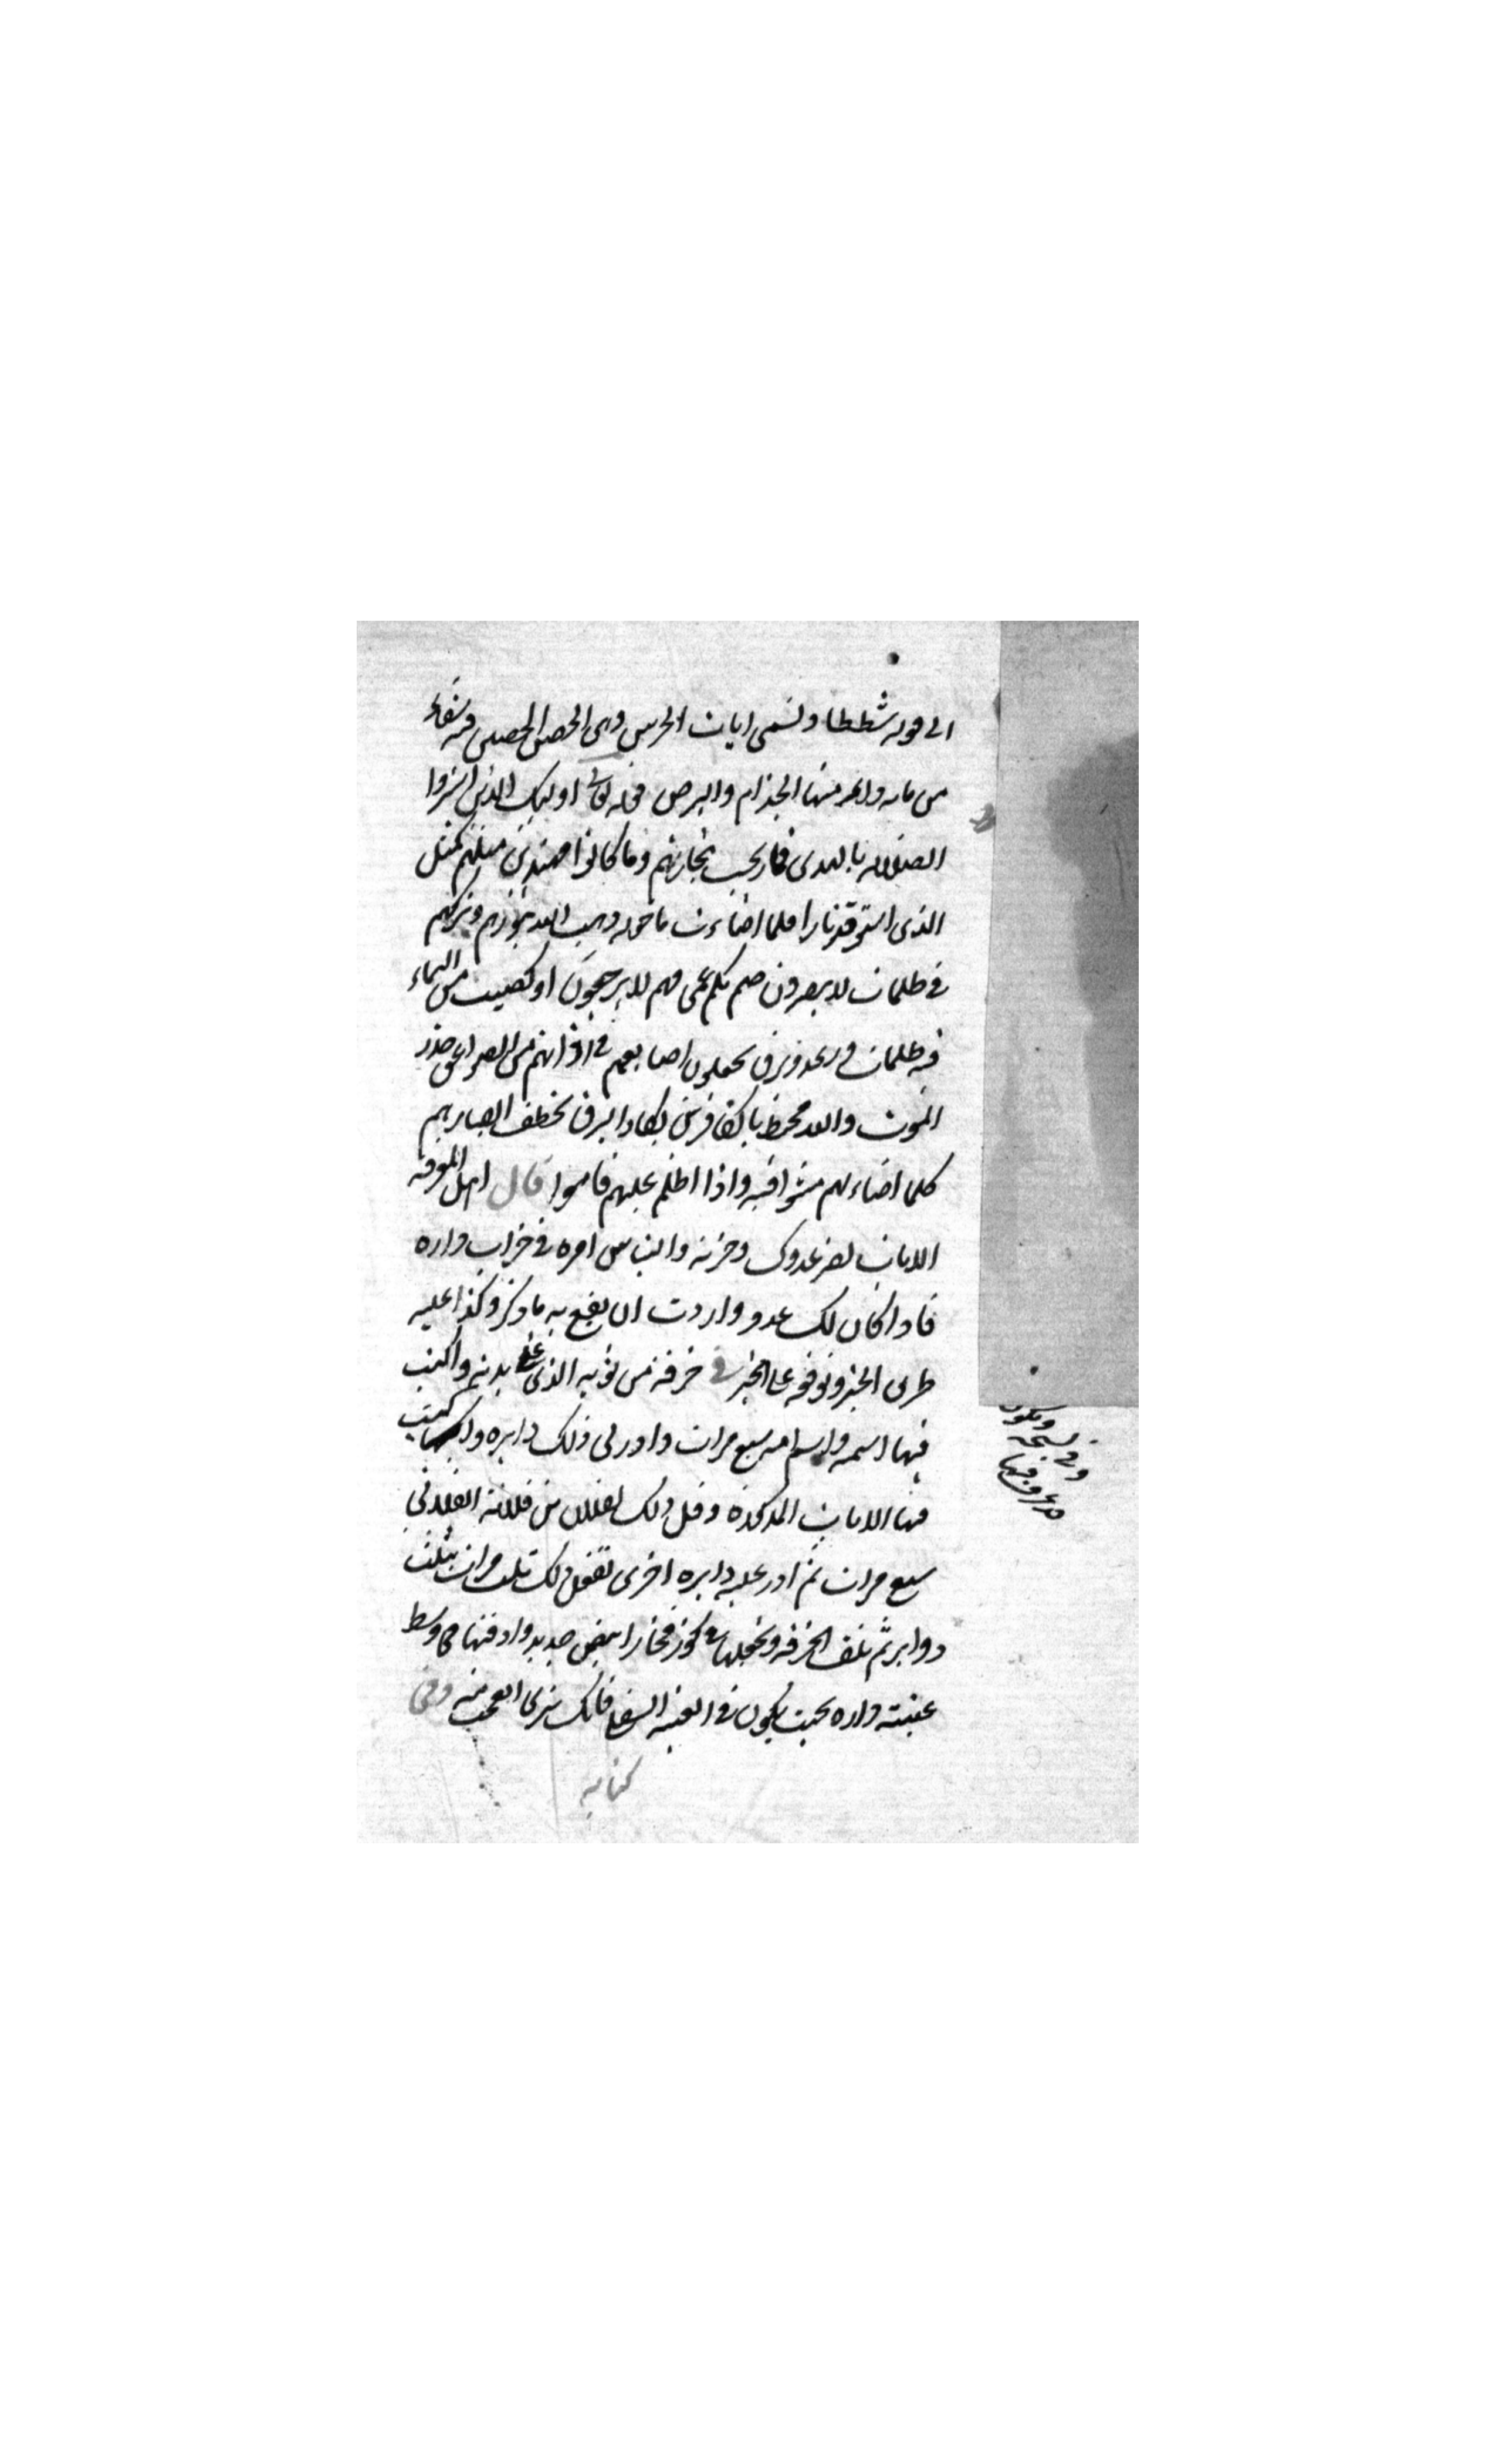 الى قوله شططا وتسمى ايات الحرس وهى الحصن الحصين فيه شفاء
من مايه داء منها الجذام والبرص قوله تعالى اوليك الذين اشتروا
الضلاله بالهدى فما ربحت تجارتهم وما كانوا مهتدين مثلهم كمثل
الذى استوقد نارا فلما اضاءت ما حوله ذهب الله بنورهم وتركهم
في ظلمات لا يبصرون صم بكم عمى فهم لا يرجعون او كصيب من السماء
فيه ظلمات ورعد وبرق يجعلون اصابعهم في اذانهم من الصواعق حذر
الموت والله محيط بالكافرين يكاد البرق يخطف ابصارهم
كلما اضاء لهم مشوا فيه واذا اظلم عليهم قاموا قال اهل المعرفه
الايات لضر عدوك وحزنه والباس امره في خراب داره
فاذا كان لك عدو واردت ان يقع به ما ذكر وكذا عليه
طرى الخبز في خرقة من ثوبه الذى على بدنه واكتب
فيها اسمه واسم امه سبع مرات وادر لى ذلك دايره واكتب
فيها الايات المذكورة وقل ذلك لفلان من فلانة الفلانى
سبع مرات ثم ادر عليه دايره اخرى تفعل ذلك ثلث مرات بثلث
دواير ثم تلف الخرقه وتجعلها في كوز فخار ابيض جديد وادفنها في وسط
عتبته داره بحيث يكون في العتبه السفلى فانك ترى العجب منه وفى
كتابه
وفى نسخه